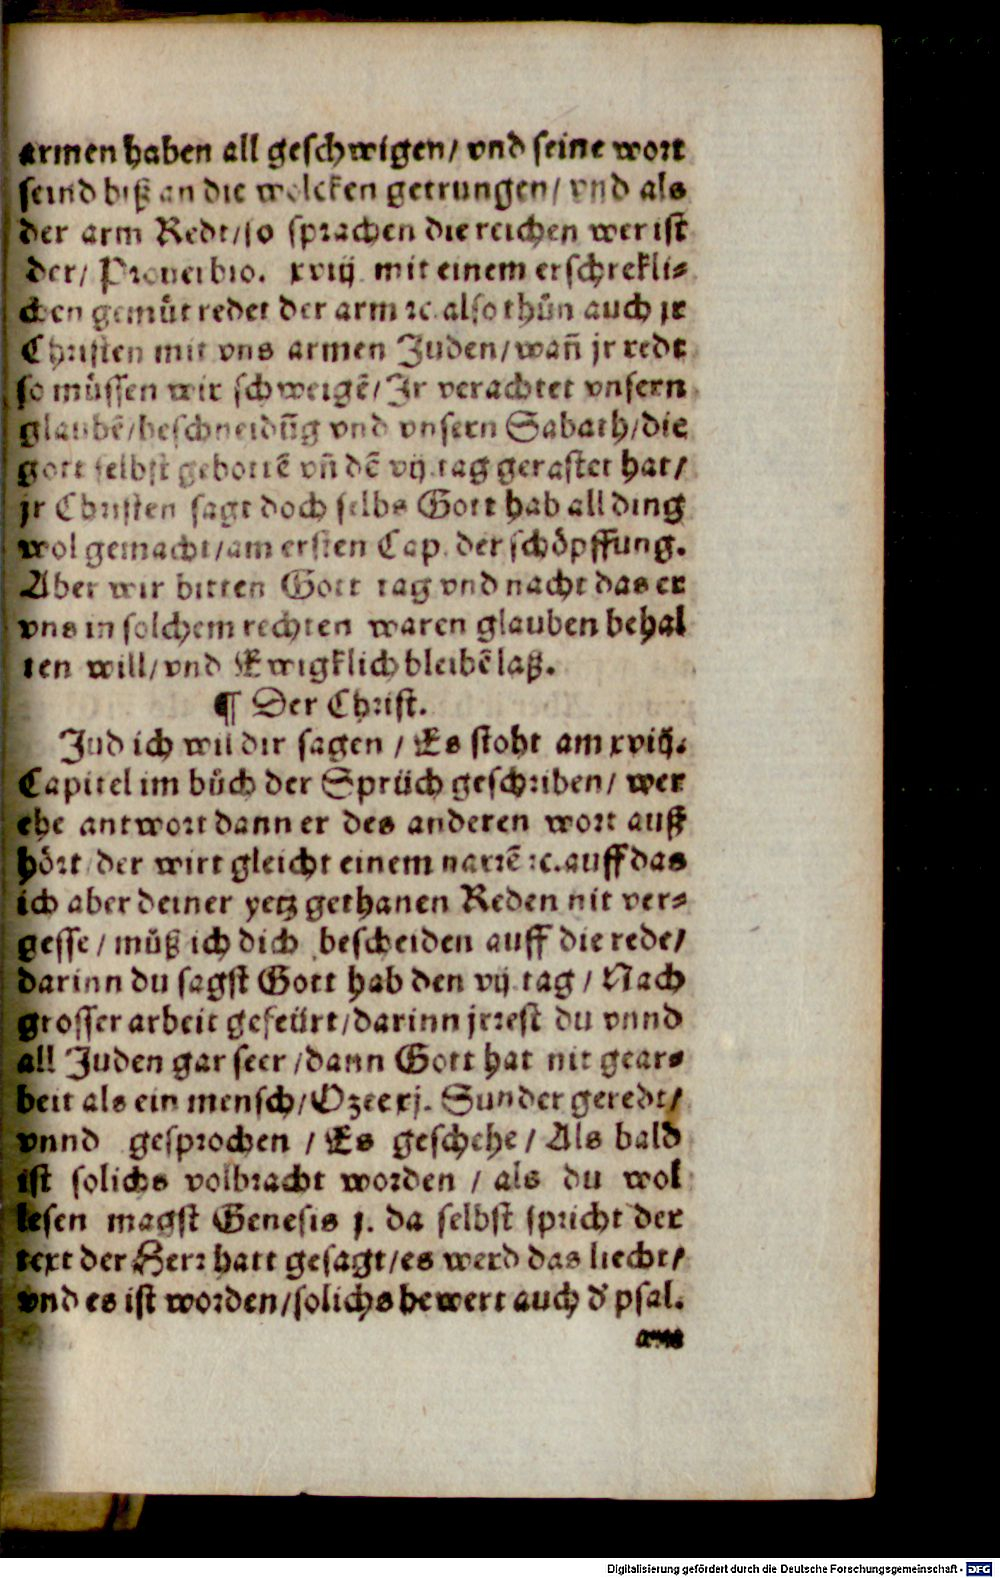 armen haben all geschwigen/ vnd seine wort
seind biß an die wolcken getrungen/ vnd als
der arm Redt/so sprachen die reichen wer ist
der/ Prouerbio. xviij mit einem erschrekli-
chen gemüt redet der arm ꝛc. also thůn auch jr
Christen mit vns armen Juden/wañ jr redt
so müssen wir schweigē/Jr verachtet vnsern
glaubē/beschneidũg vnd vnsern Sabath/die
gott selbst gebottē vñ dē vij. tag gerastet hat/
jr Christen sagt doch selbs Gott hab all ding
wol gemacht/am ersten Cap. der schöpffung.
Aber wir bitten Gott tag vnd nacht das er
vns in solchem rechten waren glauben behal
ten will/vnd Ewigklich bleibē laß.
¶ Der Christ.
Jud ich wil dir sagen / Es stoht am xviij.
Capitel im bůch der Sprüch geschriben/ wer
ehe antwort dann er des anderen wort auß
hört der wirt gleicht einem narrē ꝛc. auff das
ich aber deiner yetz gethanen Reden nit ver-
gesse / můß ich dich bescheiden auff die rede/
darinn du sagst Gott hab den vij. tag / Nach
grosser arbeit gefeürt/darinn jrrest du vnnd
all Juden gar seer /dann Gott hat nit gear-
beit als ein mensch/Ozee xj. Sunder geredt/
vnnd gesprochen / Es geschehe / Als bald
ist solichs volbracht worden / als du wol
lesen magst Genesis j. da selbst spricht der
text der Herr hatt gesagt/es werd das liecht/
vnd es ist worden/solichs bewert auch d' psal.
Digitalisierung gefördert durch die Deutsche Forschungsgemeinschaft - DFG